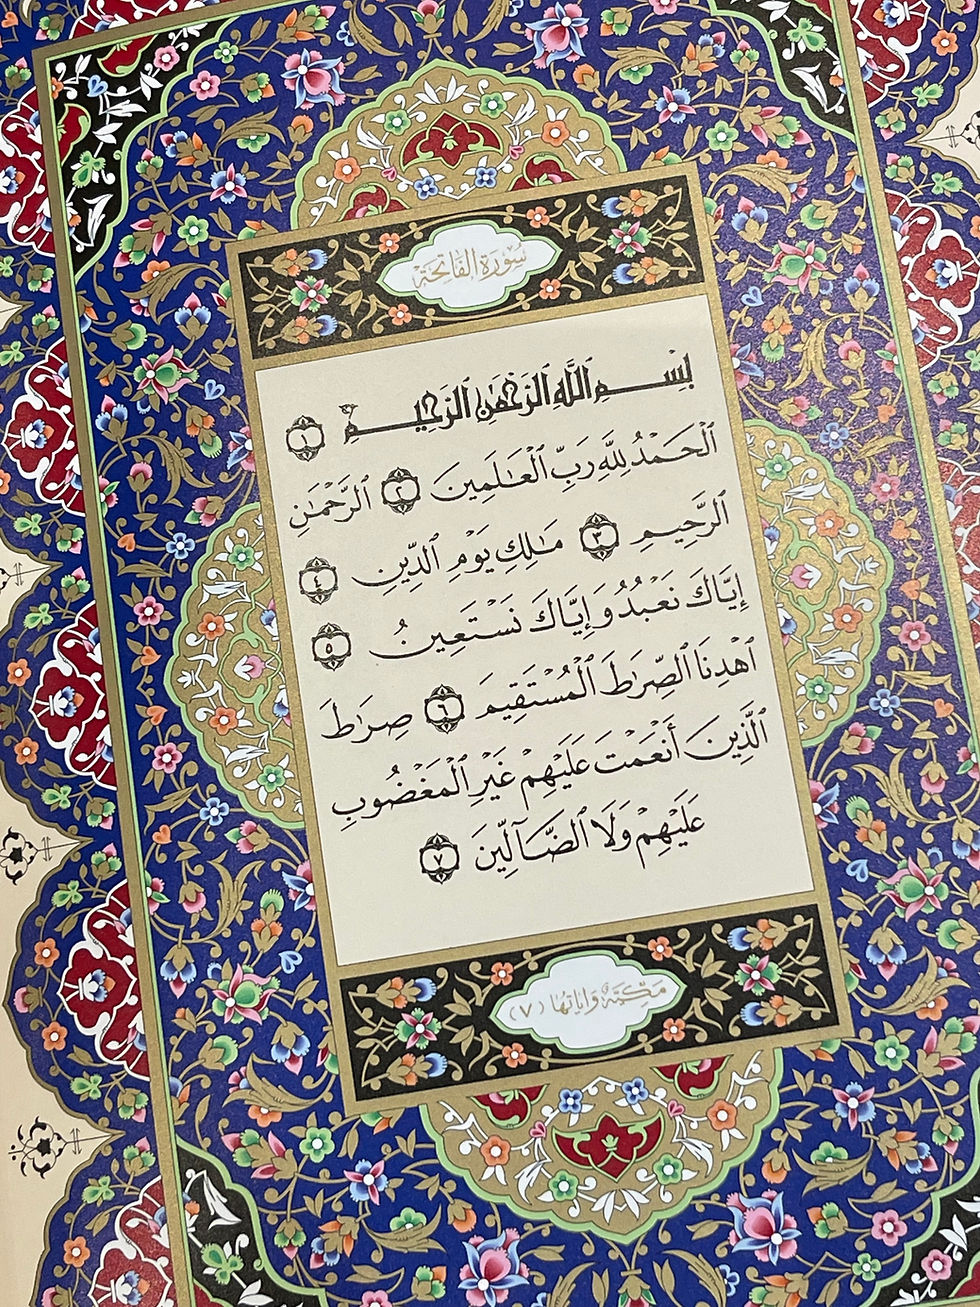 سُورَةُ الفَاتِحَةِ
بِسْمِ ٱللَّهِ ٱلرَّحْمَٰنِ ٱلرَّحِيمِ ١
ٱلْحَمْدُ لِلَّهِ رَبِّ ٱلْعَٰلَمِينَ ٢ ٱلرَّحْمَٰنِ
ٱلرَّحِيمِ ٣ مَٰلِكِ يَوْمِ ٱلدِّينِ ٤
إِيَّاكَ نَعْبُدُ وَإِيَّاكَ نَسْتَعِينُ ٥
ٱهْدِنَا ٱلصِّرَٰطَ ٱلْمُسْتَقِيمَ ٦ صِرَٰطَ
ٱلَّذِينَ أَنْعَمْتَ عَلَيْهِمْ غَيْرِ ٱلْمَغْضُوبِ
عَلَيْهِمْ وَلَا ٱلضَّآلِّينَ ٧
مَكِّيَّةٌ وَآيَاتُهَا (٧)